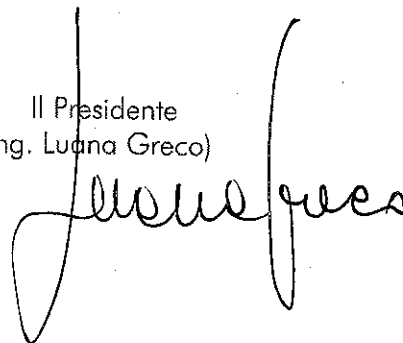 Il Presidente
ng. Luana Greco)
Luana Greco